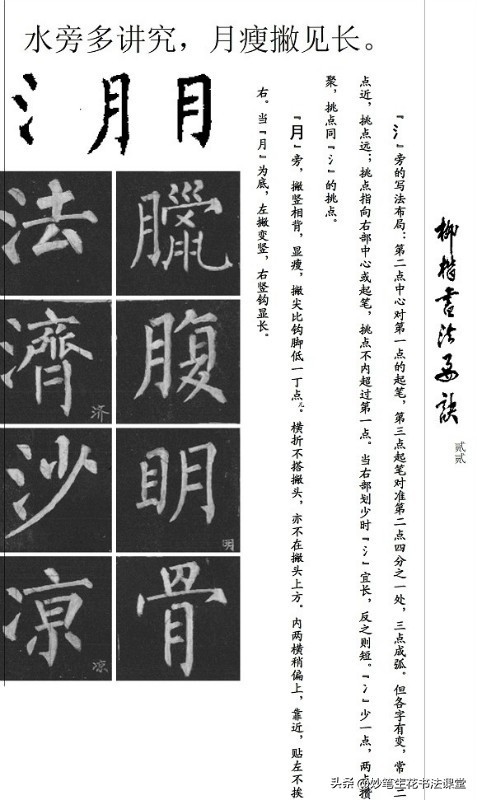 水旁多讲究，月瘦撇见长。
氵月月
柳楷書法要诀
贰贰
『氵』旁的写法布局：第二点中心对第一点的起笔，第三点起笔对准第二点四分之一处，三点成弧。但各字有变，常一二
点近，挑点远；挑点指向右部中心或起笔，挑点不内超过第一点。当右部划少时『氵』宜长，反之则短。『冫』少一点，两点攒
聚，挑点同『氵』的挑点。
『月』旁，撇竖相背，显瘦，撇尖比钩脚低一丁点儿。横折不搭撇头，亦不在撇头上方。内两横稍偏上，靠近，贴左不挨
右。当『月』为底，左撇变竖，右竖钩显长。
法
臘
濟
济
腹
沙
明
明
凉
凉
骨
头条 @妙笔生花书法课堂